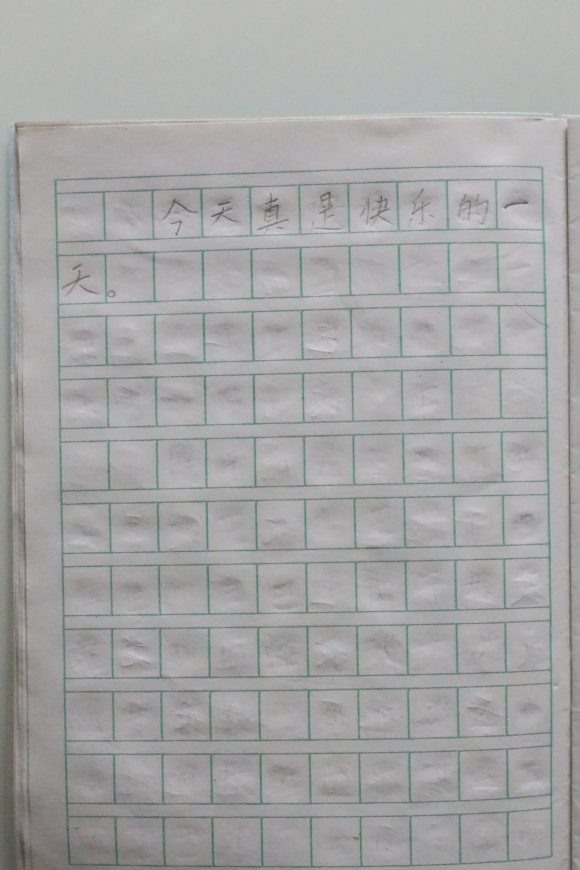 今天真是快乐的一
天。